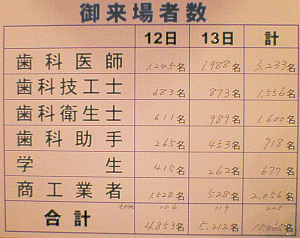 御来場者数
12日 13日 計
歯科医師 1,245名 1988名 3,233名
歯科技工士 683名 873名 1,556名
歯科衛生士 611名 989名 1,600名
歯科助手 265名 453名 718名
学生 415名 262名 677名
商工業者 1,528名 528名 2,056名
その他 106 119 225
合計 4,853名 5,212名 10,065名